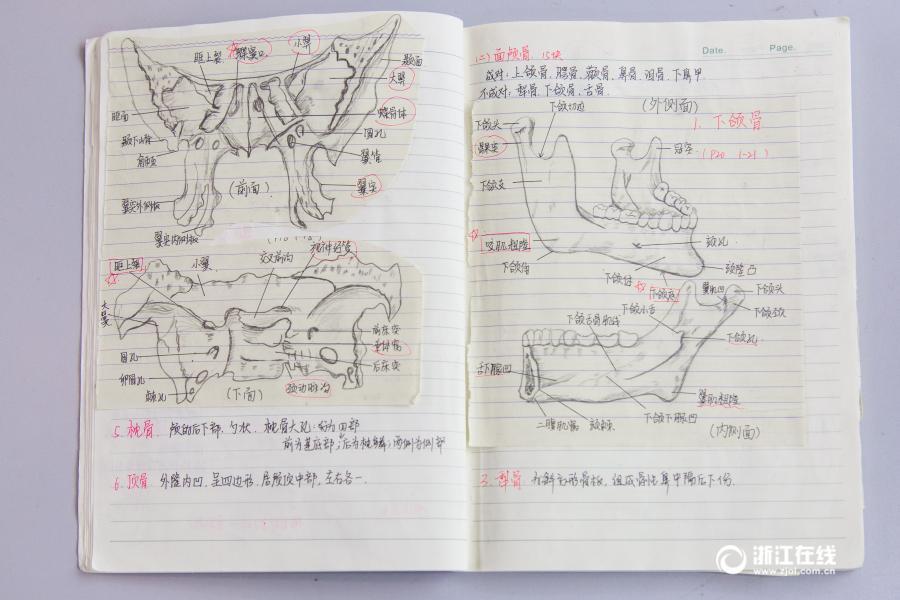 眶上裂
小翼
大翼
蝶骨体
圆孔
眶面
翼突
(前面)
翼突外侧板
翼突内侧板
眶上裂
小翼
交叉前沟
视神经管
大翼
前床突
垂体窝
后床突
圆孔
卵圆孔
棘孔
(下面)
颈动脉沟
5. 枕骨. 颅的后下部, 勺状,
6. 顶骨 外隆内凹, 呈四边形. 居颅顶中部, 左右各一.
Date. Page.
(二) 面颅骨. 15块
成对: 上颌骨、腭骨、颧骨、鼻骨、泪骨、下鼻甲
不成对: 犁骨、下颌骨、舌骨
(外侧面)
1. 下颌骨
(P20 1-21)
下颌切迹
下颌头
冠突
下颌支
咬肌粗隆
颏孔
下颌角
颏隆凸
下颌体
下颌底
翼肌凹
下颌头
下颌颈
下颌小舌
下颌舌骨肌线
下颌孔
舌下腺凹
翼肌粗隆
二腹肌窝
颏棘
下颌下腺凹
(内侧面)
3. 犁骨 为斜方形骨板, 组成骨性鼻中隔后下份.
浙江在线
www.zjol.com.cn